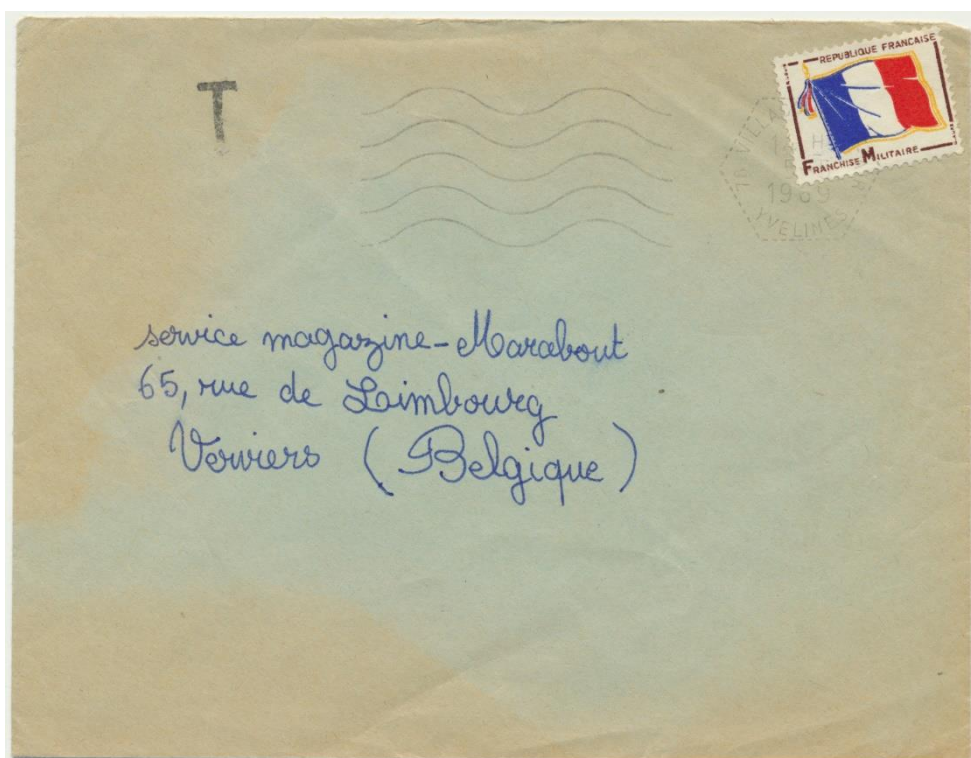 T
REPUBLIQUE FRANCAISE
FRANCHISE MILITAIRE
1969
YVELINES
service magazine-Marabout
65, rue de Limbourg
Verviers (Belgique)